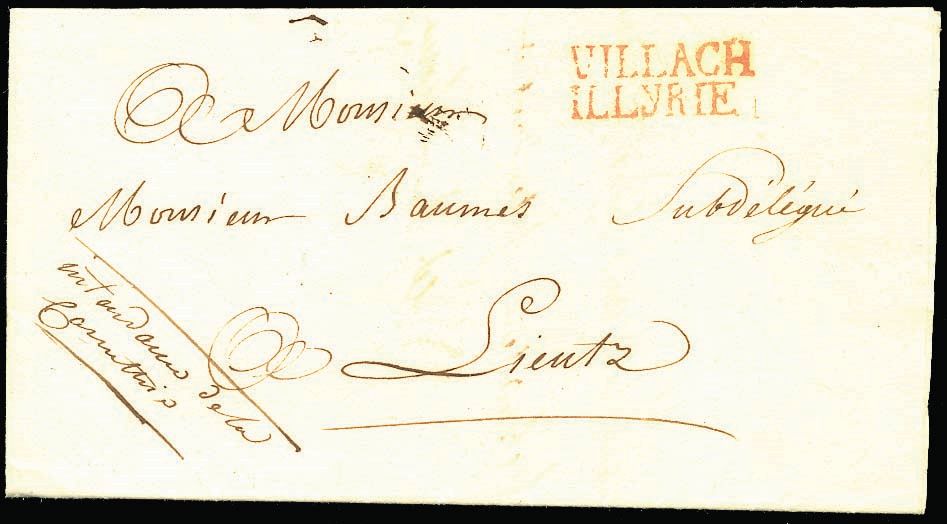 VILLACH
ILLYRIE
A Monsieur
Monsieur Baumès Subdélégué
A Lientz
intendance de la
Carinthie